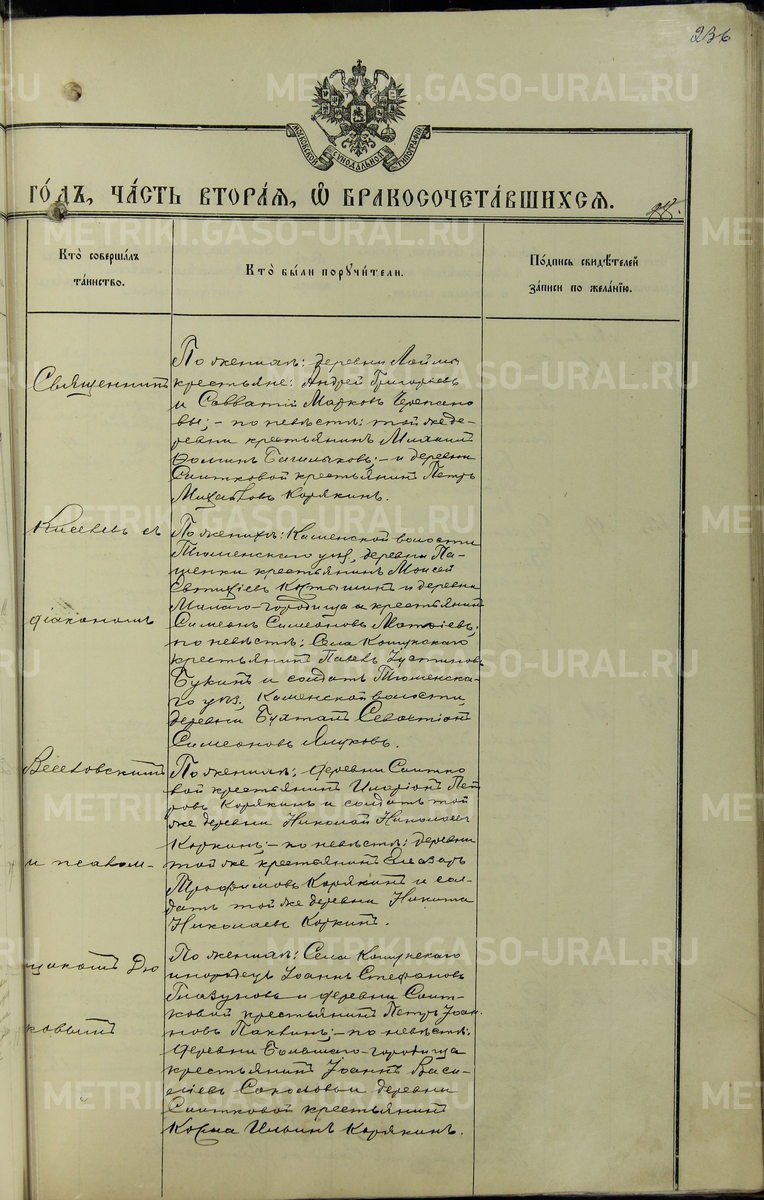 236
METRIKI.GASO-URAL.RU
МОСКОВСКОЙ СѴНОДАЛЬНОЙ ТИПОГРАФІИ
ГО́ДЪ, ЧА́СТЬ ВТОРА́Я, Ѡ҆ БРАКОСОЧЕТА́ВШИХСЯ.
Кто̀ соверша́лъ
та́инство.
Кто̀ бы́ли поручи́тели.
По́дпись свидѣ́телей
за́писи по жела́нію.
Священникъ
Киселевъ съ
діакономъ
Веселовскимъ
и псалом-
щикомъ Дю
ковымъ
По женихѣ: деревни
крестьяне: Андрей Григорьевъ
и Савватій Марковъ Черепано
вы; - по невѣстѣ: той же де-
ревни крестьянинъ
Ѳоминъ и деревни
Сиитковой крестьянинъ Петръ
Михайловъ Корякинъ.
По женихѣ: Каменской волости
Тюменскаго уѣз., деревни Па-
шенки крестьянинъ Моисей
Евтихіевъ и деревни
Малаго-городища крестьянинъ
Симеонъ Симеоновъ Матвѣевъ;
по невѣстѣ: Села Кошукскаго
крестьянинъ Павелъ Іустиновъ
Букинъ и солдатъ Тюменска-
го уѣз., Каменской волости,
деревни Севастіанъ
Симеоновъ
По женихѣ: деревни Сиитко
вой крестьянинъ Иларіонъ Пет
ровъ Корякинъ и солдатъ той
же деревни Николай Николаевъ
Коркинъ; - по невѣстѣ: деревни
той же крестьянинъ Елеазаръ
Трофимовъ Корякинъ и сол-
датъ той же деревни Никита
Николаевъ Коркинъ.
По женихѣ: Села Кошукскаго
инородецъ Іоаннъ Стефановъ
Глазуновъ и деревни Сиит-
ковой крестьянинъ Петръ Іоан
новъ Паквинъ; - по невѣстѣ:
деревни Большаго-городища
крестьянинъ Іоаннъ Васи-
ліевъ Соколовъ и деревни
Сиитковой крестьянинъ
Ильинъ Корякинъ.